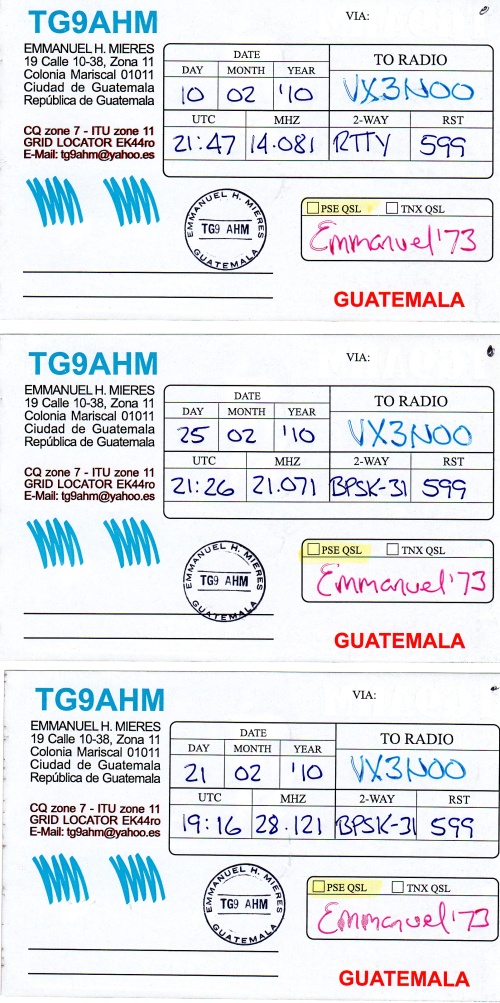 TG9AHM VIA:
EMMANUEL H. MIERES
19 Calle 10-38, Zona 11
Colonia Mariscal 01011
Ciudad de Guatemala
República de Guatemala
CQ zone 7 - ITU zone 11
GRID LOCATOR EK44ro
E-Mail: tg9ahm@yahoo.es
DATE TO RADIO
DAY MONTH YEAR
10 02 '10 VX3NOO
UTC MHZ 2-WAY RST
21:47 14.081 RTTY 599
EMMANUEL H. MIERES
TG9 AHM
GUATEMALA
PSE QSL TNX QSL
Emmanuel '73
GUATEMALA
TG9AHM VIA:
EMMANUEL H. MIERES
19 Calle 10-38, Zona 11
Colonia Mariscal 01011
Ciudad de Guatemala
República de Guatemala
CQ zone 7 - ITU zone 11
GRID LOCATOR EK44ro
E-Mail: tg9ahm@yahoo.es
DATE TO RADIO
DAY MONTH YEAR
25 02 '10 VX3NOO
UTC MHZ 2-WAY RST
21:26 21.071 BPSK-31 599
EMMANUEL H. MIERES
TG9 AHM
GUATEMALA
PSE QSL TNX QSL
Emmanuel '73
GUATEMALA
TG9AHM VIA:
EMMANUEL H. MIERES
19 Calle 10-38, Zona 11
Colonia Mariscal 01011
Ciudad de Guatemala
República de Guatemala
CQ zone 7 - ITU zone 11
GRID LOCATOR EK44ro
E-Mail: tg9ahm@yahoo.es
DATE TO RADIO
DAY MONTH YEAR
21 02 '10 VX3NOO
UTC MHZ 2-WAY RST
19:16 28.121 BPSK-31 599
EMMANUEL H. MIERES
TG9 AHM
GUATEMALA
PSE QSL TNX QSL
Emmanuel '73
GUATEMALA